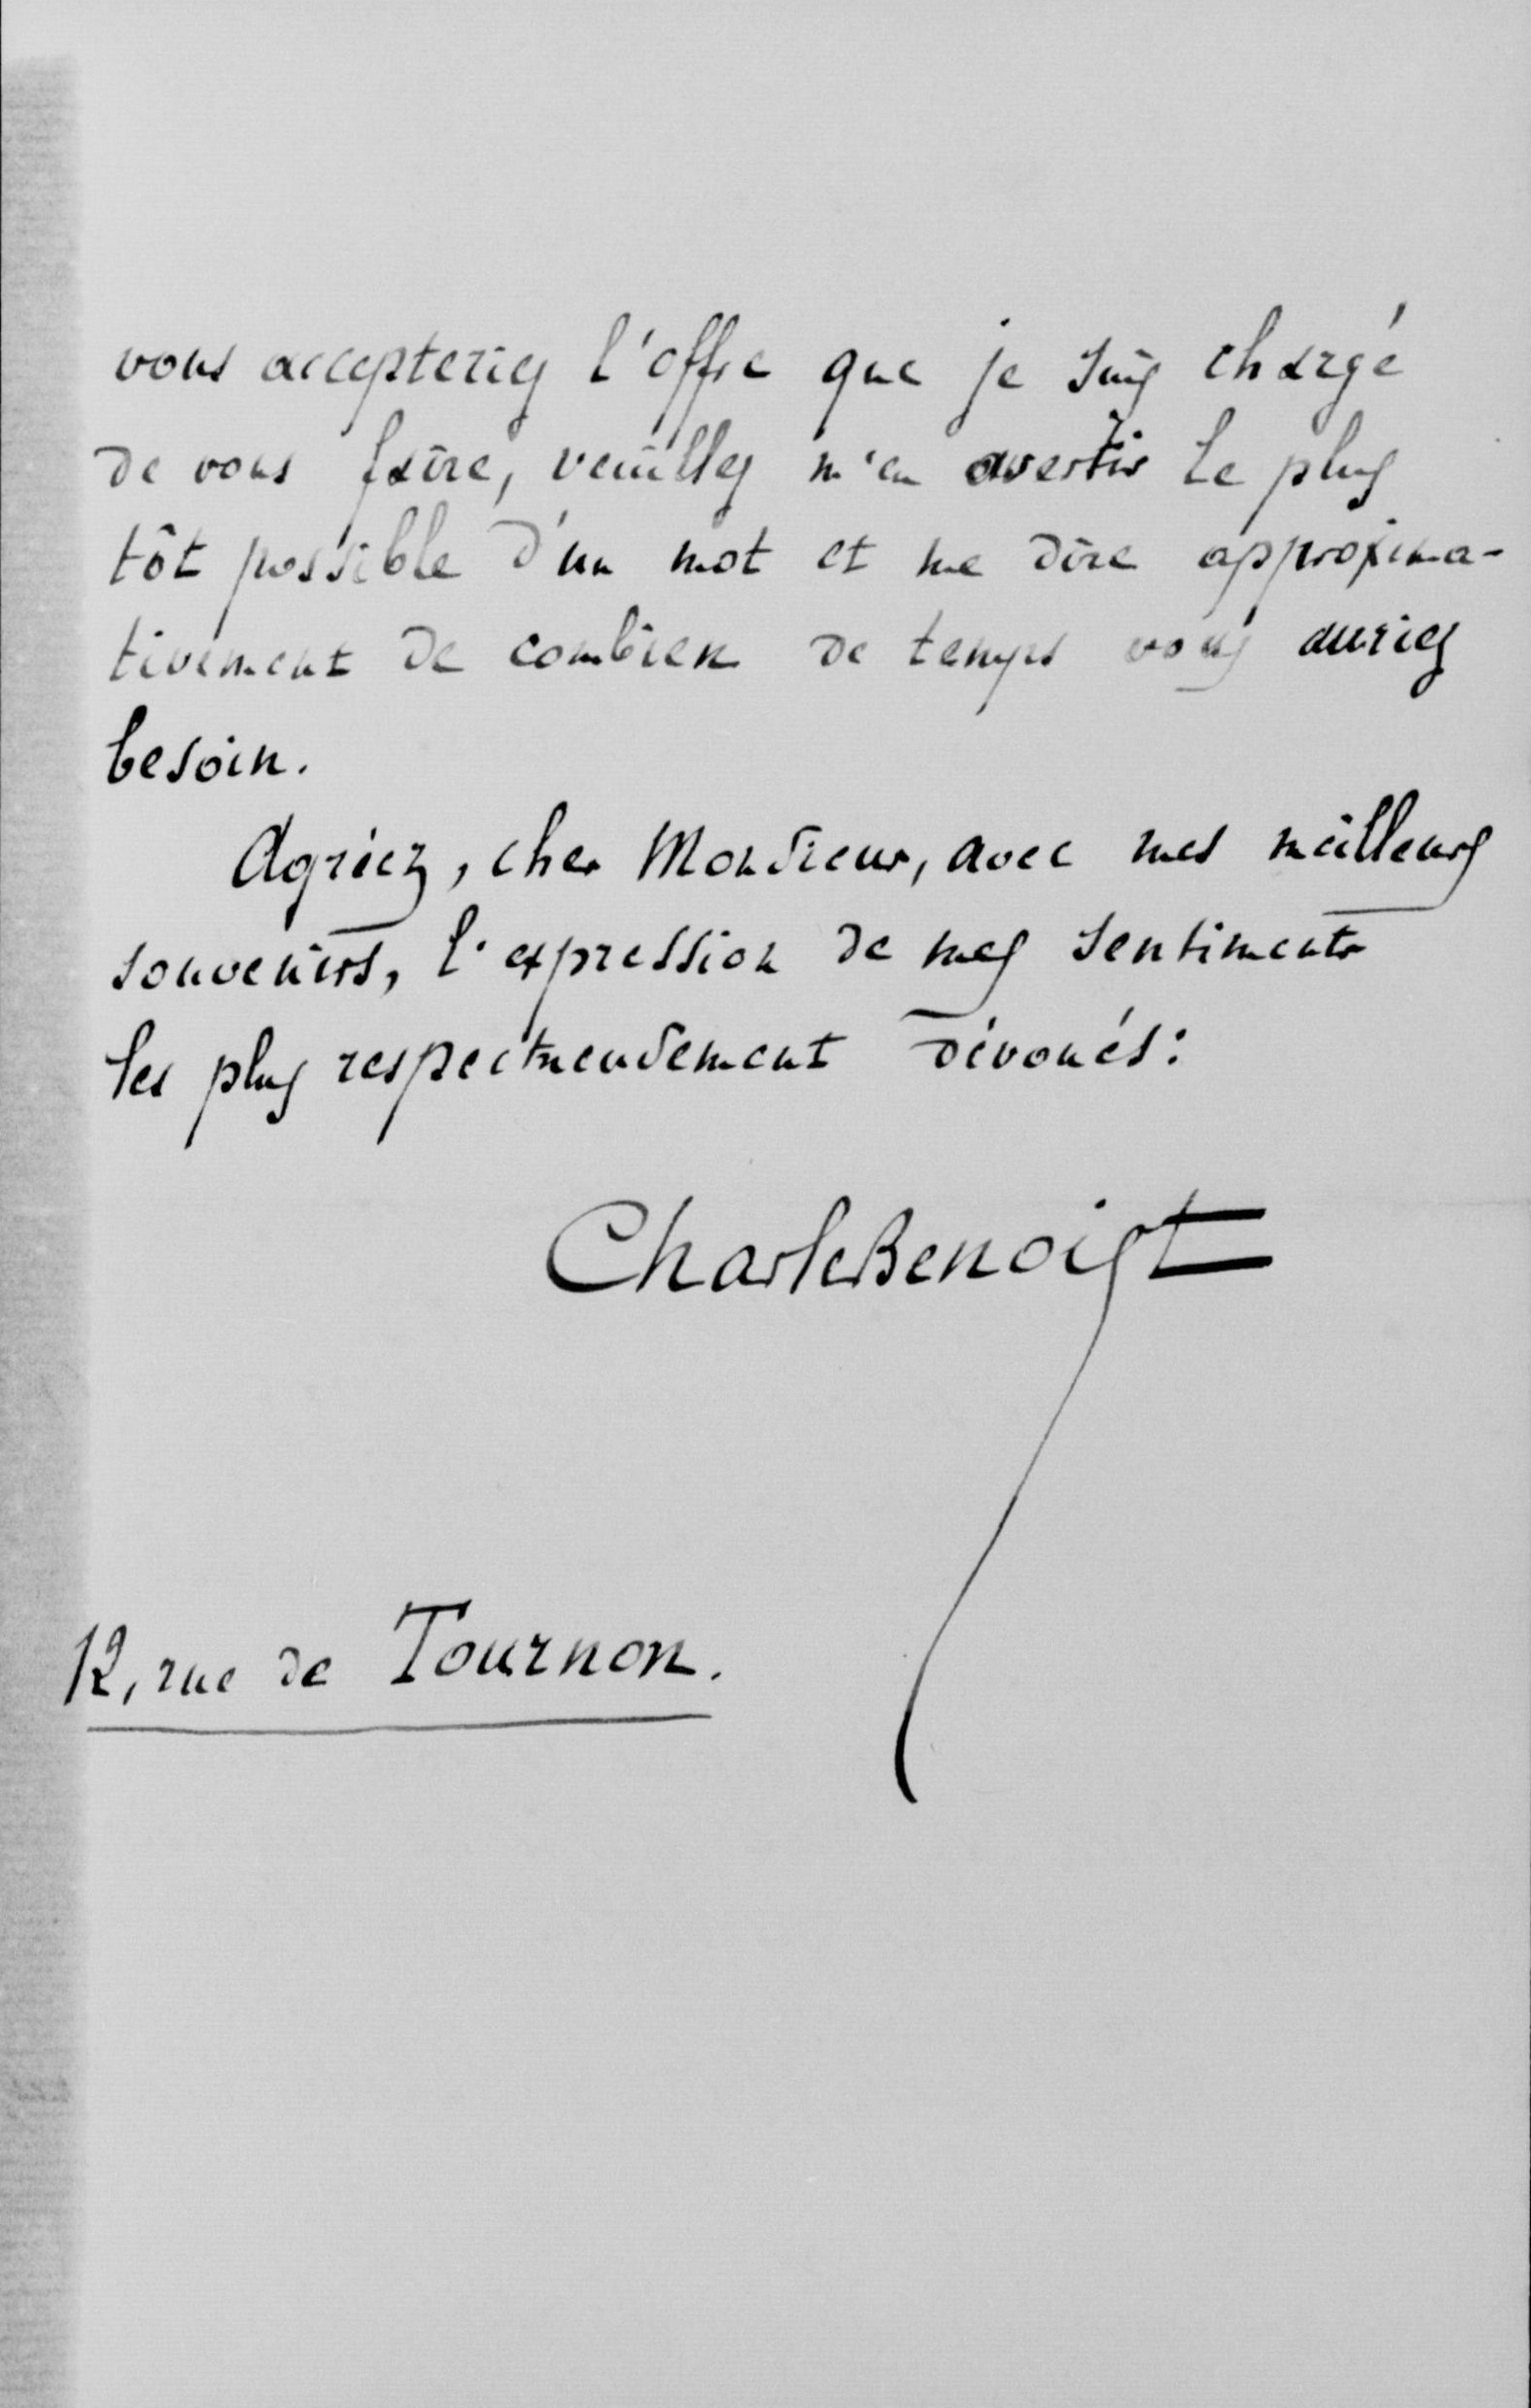 vous accepteriez l'offre que je suis chargé
de vous faire, veuillez m'en avertir le plus
tôt possible d'un mot et me dire approxima-
tivement de combien de temps vous auriez
besoin.
Agréez, cher Monsieur, avec mes meilleurs
souvenirs, l'expression de mes sentiments
les plus respectueusement dévoués:
Charles Benoist
12, rue de Tournon.